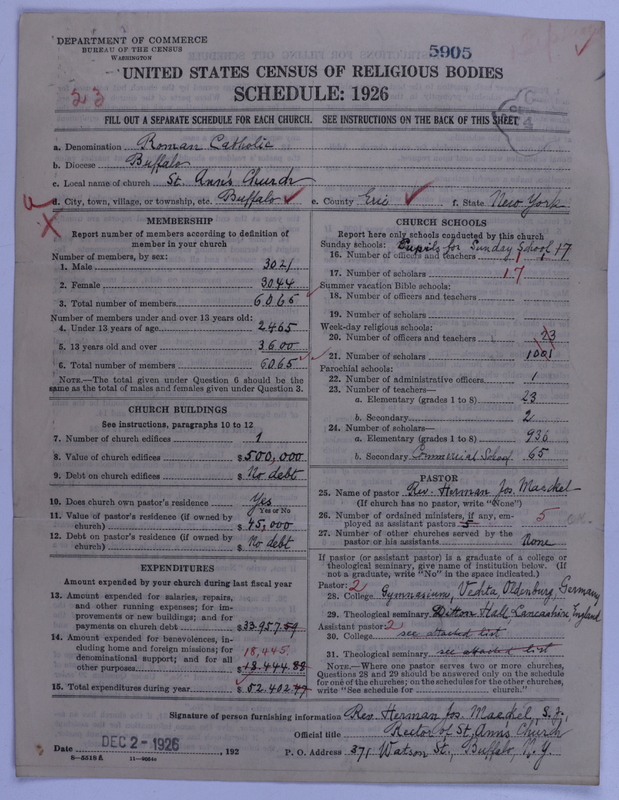 DEPARTMENT OF COMMERCE
BUREAU OF THE CENSUS
WASHINGTON
5905
UNITED STATES CENSUS OF RELIGIOUS BODIES
SCHEDULE: 1926
23
FILL OUT A SEPARATE SCHEDULE FOR EACH CHURCH. SEE INSTRUCTIONS ON THE BACK OF THIS SHEET
a. Denomination Roman Catholic
b. Diocese Buffalo
c. Local name of church St. Ann's Church
d. City, town, village, or township, etc. Buffalo e. County Erie f. State New York
MEMBERSHIP
Report number of members according to definition of member in your church
Number of members, by sex:
1. Male 3021
2. Female 3044
3. Total number of members 6065
Number of members under and over 13 years old:
4. Under 13 years of age 2465
5. 13 years old and over 3600
6. Total number of members 6065
NOTE.—The total given under Question 6 should be the same as the total of males and females given under Question 3.
CHURCH BUILDINGS
See instructions, paragraphs 10 to 12
7. Number of church edifices 1
8. Value of church edifices $500,000
9. Debt on church edifices $No debt
10. Does church own pastor's residence Yes
Yes or No
11. Value of pastor's residence (if owned by church) $45,000
12. Debt on pastor's residence (if owned by church) $No debt
EXPENDITURES
Amount expended by your church during last fiscal year
13. Amount expended for salaries, repairs, and other running expenses; for improvements or new buildings; and for payments on church debt $33.957.59
14. Amount expended for benevolences, including home and foreign missions; for denominational support; and for all other purposes 18,445. $18.444.88
15. Total expenditures during year $52.402.47
CHURCH SCHOOLS
Report here only schools conducted by this church
Sunday schools: Pupils for Sunday School 17
16. Number of officers and teachers
17. Number of scholars 17
Summer vacation Bible schools:
18. Number of officers and teachers
19. Number of scholars
Week-day religious schools:
20. Number of officers and teachers 23
21. Number of scholars 1001
Parochial schools:
22. Number of administrative officers 1
23. Number of teachers—
a. Elementary (grades 1 to 8) 23
b. Secondary 2
24. Number of scholars—
a. Elementary (grades 1 to 8) 936
b. Secondary Commercial School 65
PASTOR
25. Name of pastor Rev. Herman Jos. Maeckel
(If church has no pastor, write "None")
26. Number of ordained ministers, if any, employed as assistant pastors 5 5
27. Number of other churches served by the pastor or his assistants None
If pastor (or assistant pastor) is a graduate of a college or theological seminary, give name of institution below. (If not a graduate, write "No" in the space indicated.)
Pastor: 2
28. College Gymnasium, Vechta, Oldenburg, Germany
29. Theological seminary Ditton Hall Lancashire, England
Assistant pastor: 2
30. College see attached list
31. Theological seminary see attached list
NOTE.—Where one pastor serves two or more churches, Questions 28 and 29 should be answered only on the schedule for one of the churches; on the schedules for the other churches, write "See schedule for church."
Signature of person furnishing information Rev. Herman Jos. Maeckel, S.J.,
Official title Rector of St. Ann's Church
Date DEC 2 - 1926, 192
P. O. Address 371 Watson St., Buffalo, N.Y.
8—5518 a 11—9054a